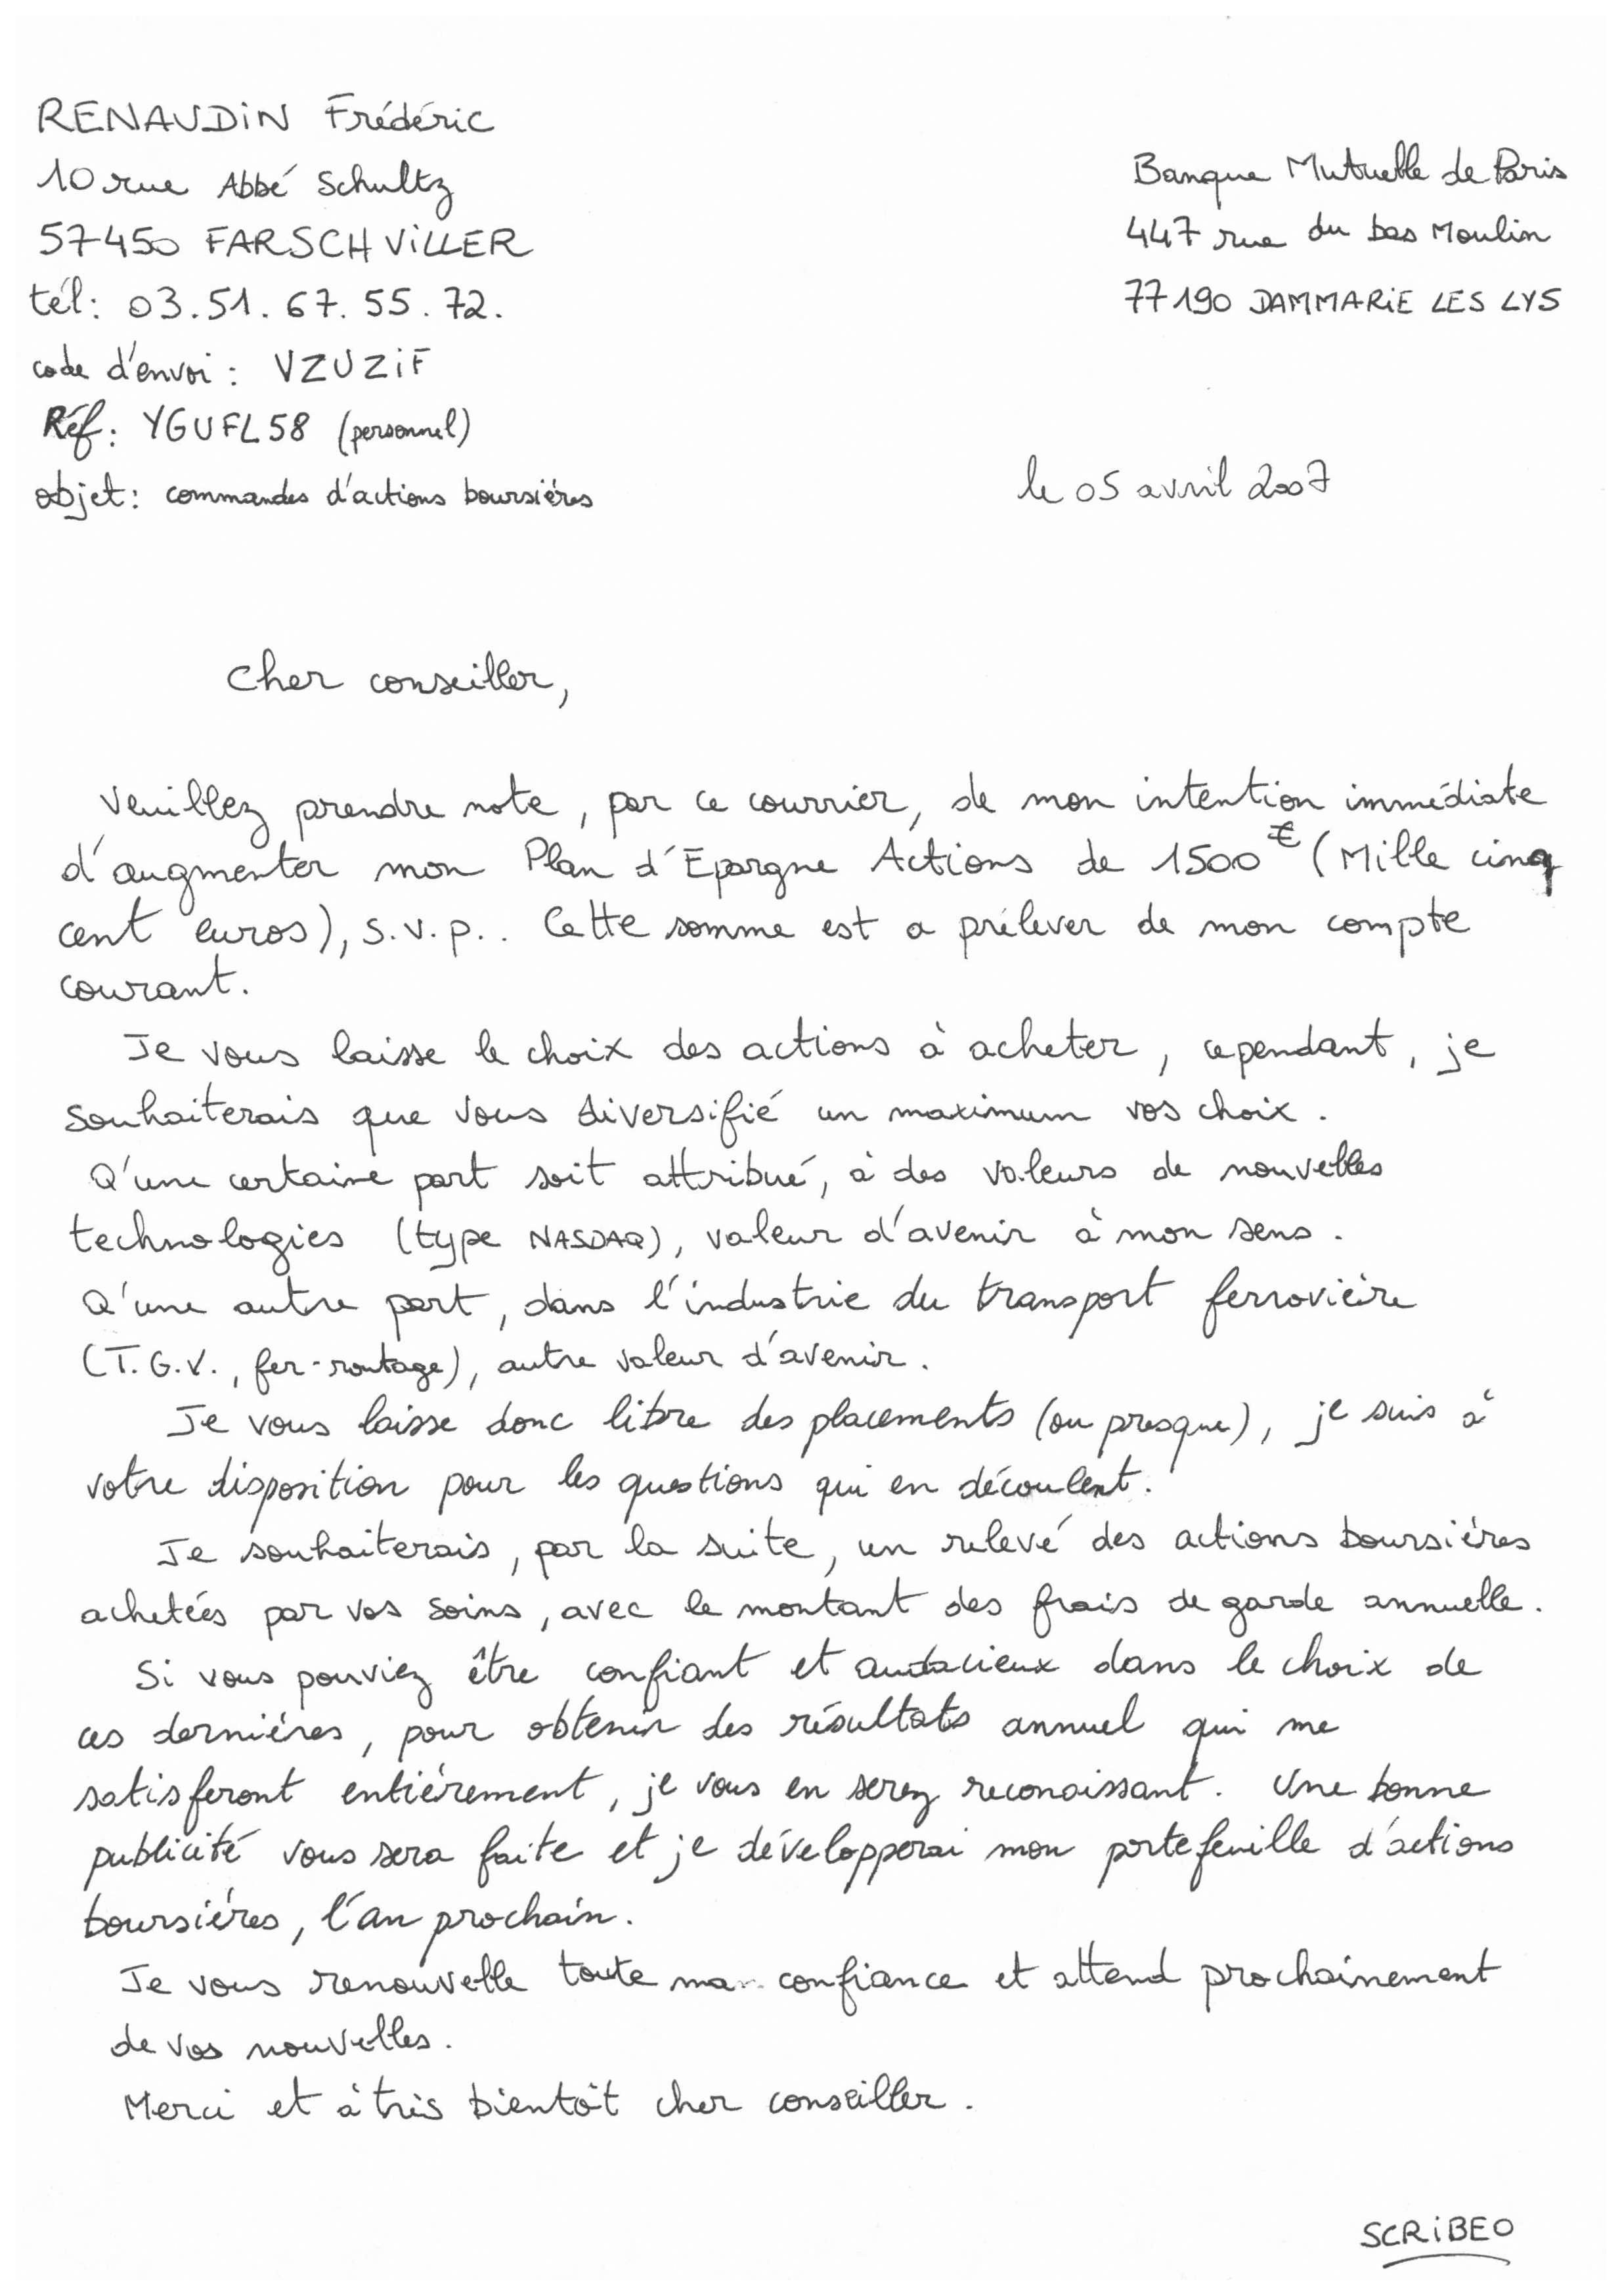 RENAUDIN Frédéric
10 rue Abbé Schultz
57450 FARSCHVILLER
tél: 03.51.67.55.72.
code d'envoi : VZUZIF
Réf: YGUFL58 (personnel)
objet: commandes d'actions boursiéres
Banque Mutuelle de Paris
447 rue du bas Moulin
77190 DAMMARIE LES LYS
le 05 avril 2007
Cher conseiller,
Veuillez prendre note, par ce courrier, de mon intention immédiate
d'augmenter mon Plan d'Epargne Actions de 1500€ (Mille cinq
cent euros), s.v.p.. Cette somme est a préléver de mon compte
courant.
Je vous laisse le choix des actions à acheter, cependant, je
souhaiterais que vous diversifié un maximum vos choix.
Q'une certaine part soit attribué, à des valeurs de nouvelles
technologies (type NASDAQ), valeur d'avenir à mon sens.
Q'une autre part, dans l'industrie du transport ferroviére
(T.G.V., fer-routage), autre valeur d'avenir.
Je vous laisse donc libre des placements (ou presque), je suis à
votre disposition pour les questions qui en découlent.
Je souhaiterais, par la suite, un relevé des actions boursiéres
achetées par vos soins, avec le montant des frais de garde annuelle.
Si vous pouviez être confiant et audacieux dans le choix de
ces derniéres, pour obtenir des résultats annuel qui me
satisferont entiérement, je vous en serez reconaissant. Une bonne
publicité vous sera faite et je développerai mon portefeuille d'actions
boursiéres, l'an prochain.
Je vous renouvelle toute ma confiance et attend prochainement
de vos nouvelles.
Merci et à trés bientôt cher conseiller.
SCRIBEO